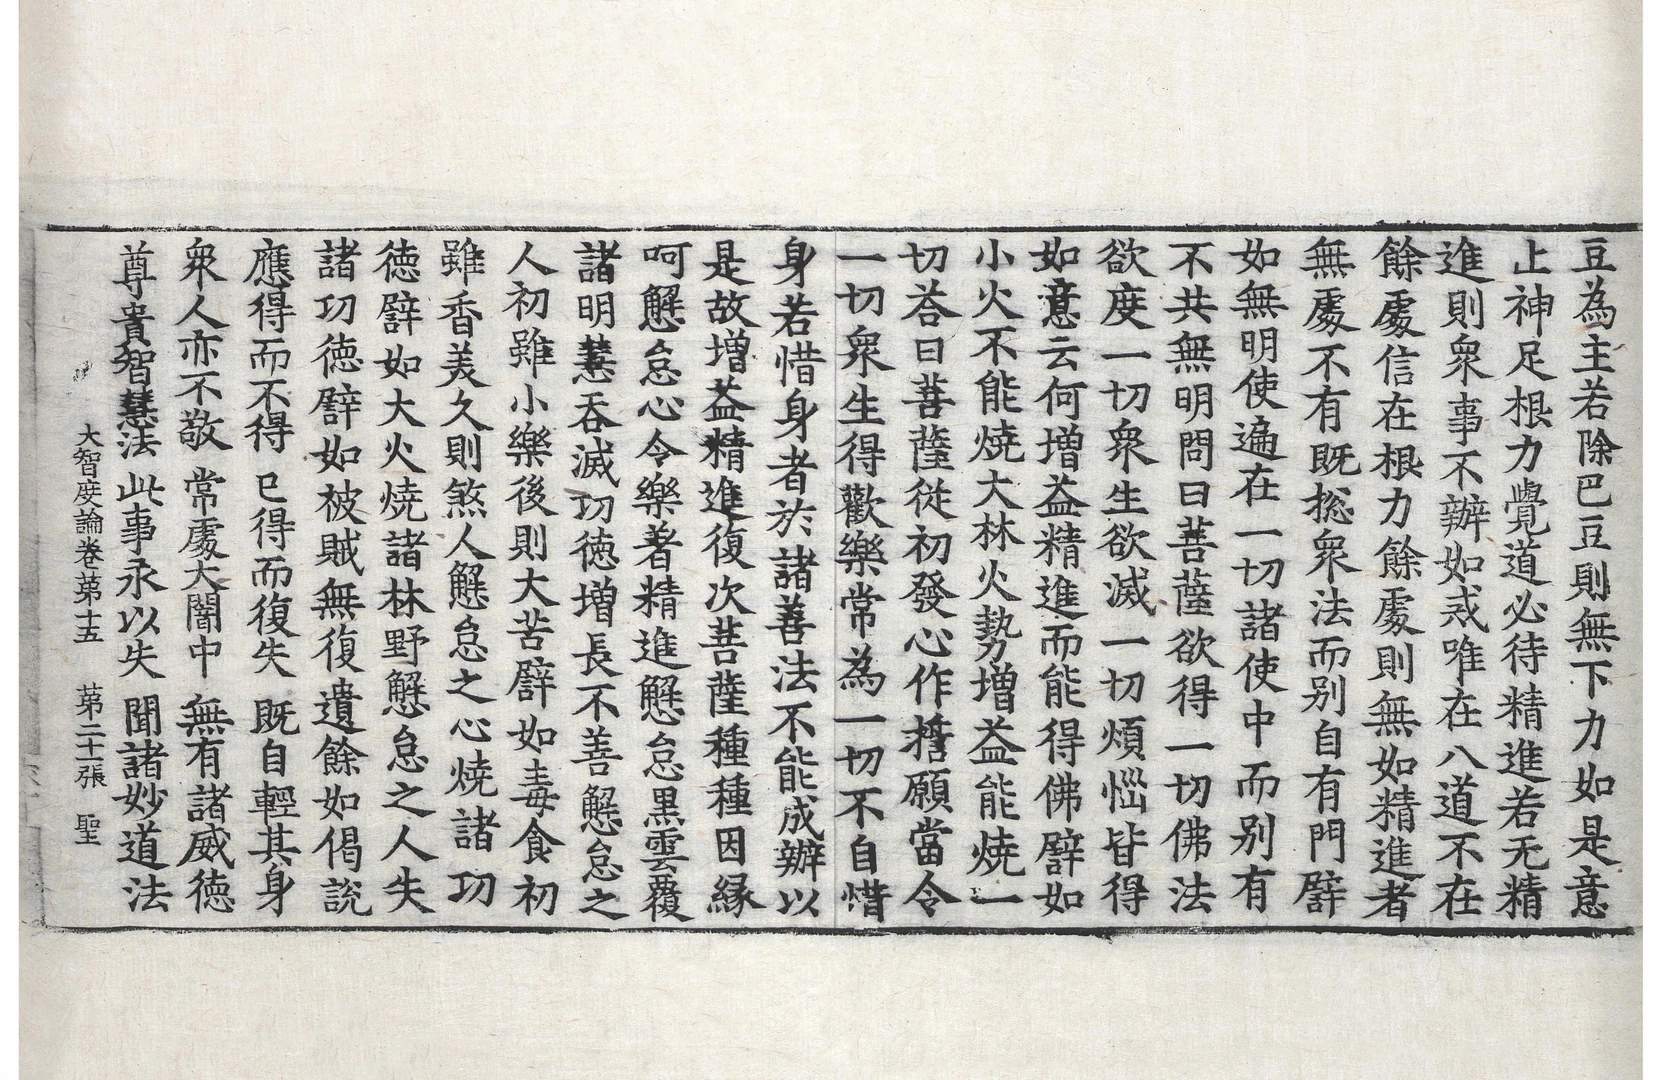 豆為主若除巴豆則無下力如是意
止神足根力覺道必待精進若无精
進則衆事不辦如戒唯在八道不在
餘處信在根力餘處則無如精進者
無處不有既捴衆法而别自有門譬
如無明使遍在一切諸使中而别有
不共無明問曰菩薩欲得一切佛法
欲度一切衆生欲滅一切煩惱皆得
如意云何増益精進而能得佛譬如
小火不能焼大林火勢増益能焼一
切荅曰菩薩從初發心作擔願當令
一切衆生得歡樂常為一切不自惜
身若惜身者於諸善法不能成辦以
是故增益精進復次菩薩種種因縁
呵懈怠心令樂著精進懈怠黒雲覆
諸明慧吞滅功徳増長不善懈怠之
人初雖小樂後則大苦譬如毒食初
雖香美久則煞人懈怠之心焼諸功
徳譬如大火焼諸林野懈怠之人失
諸功徳譬如被賊無復遺餘如偈説
應得而不得 已得而復失 既自輕其身
衆人亦不敬 常處大闇中 無有諸威徳
尊貴智慧法 此事永以失 聞諸妙道法
大智度論卷苐十五 苐二十一張 聖